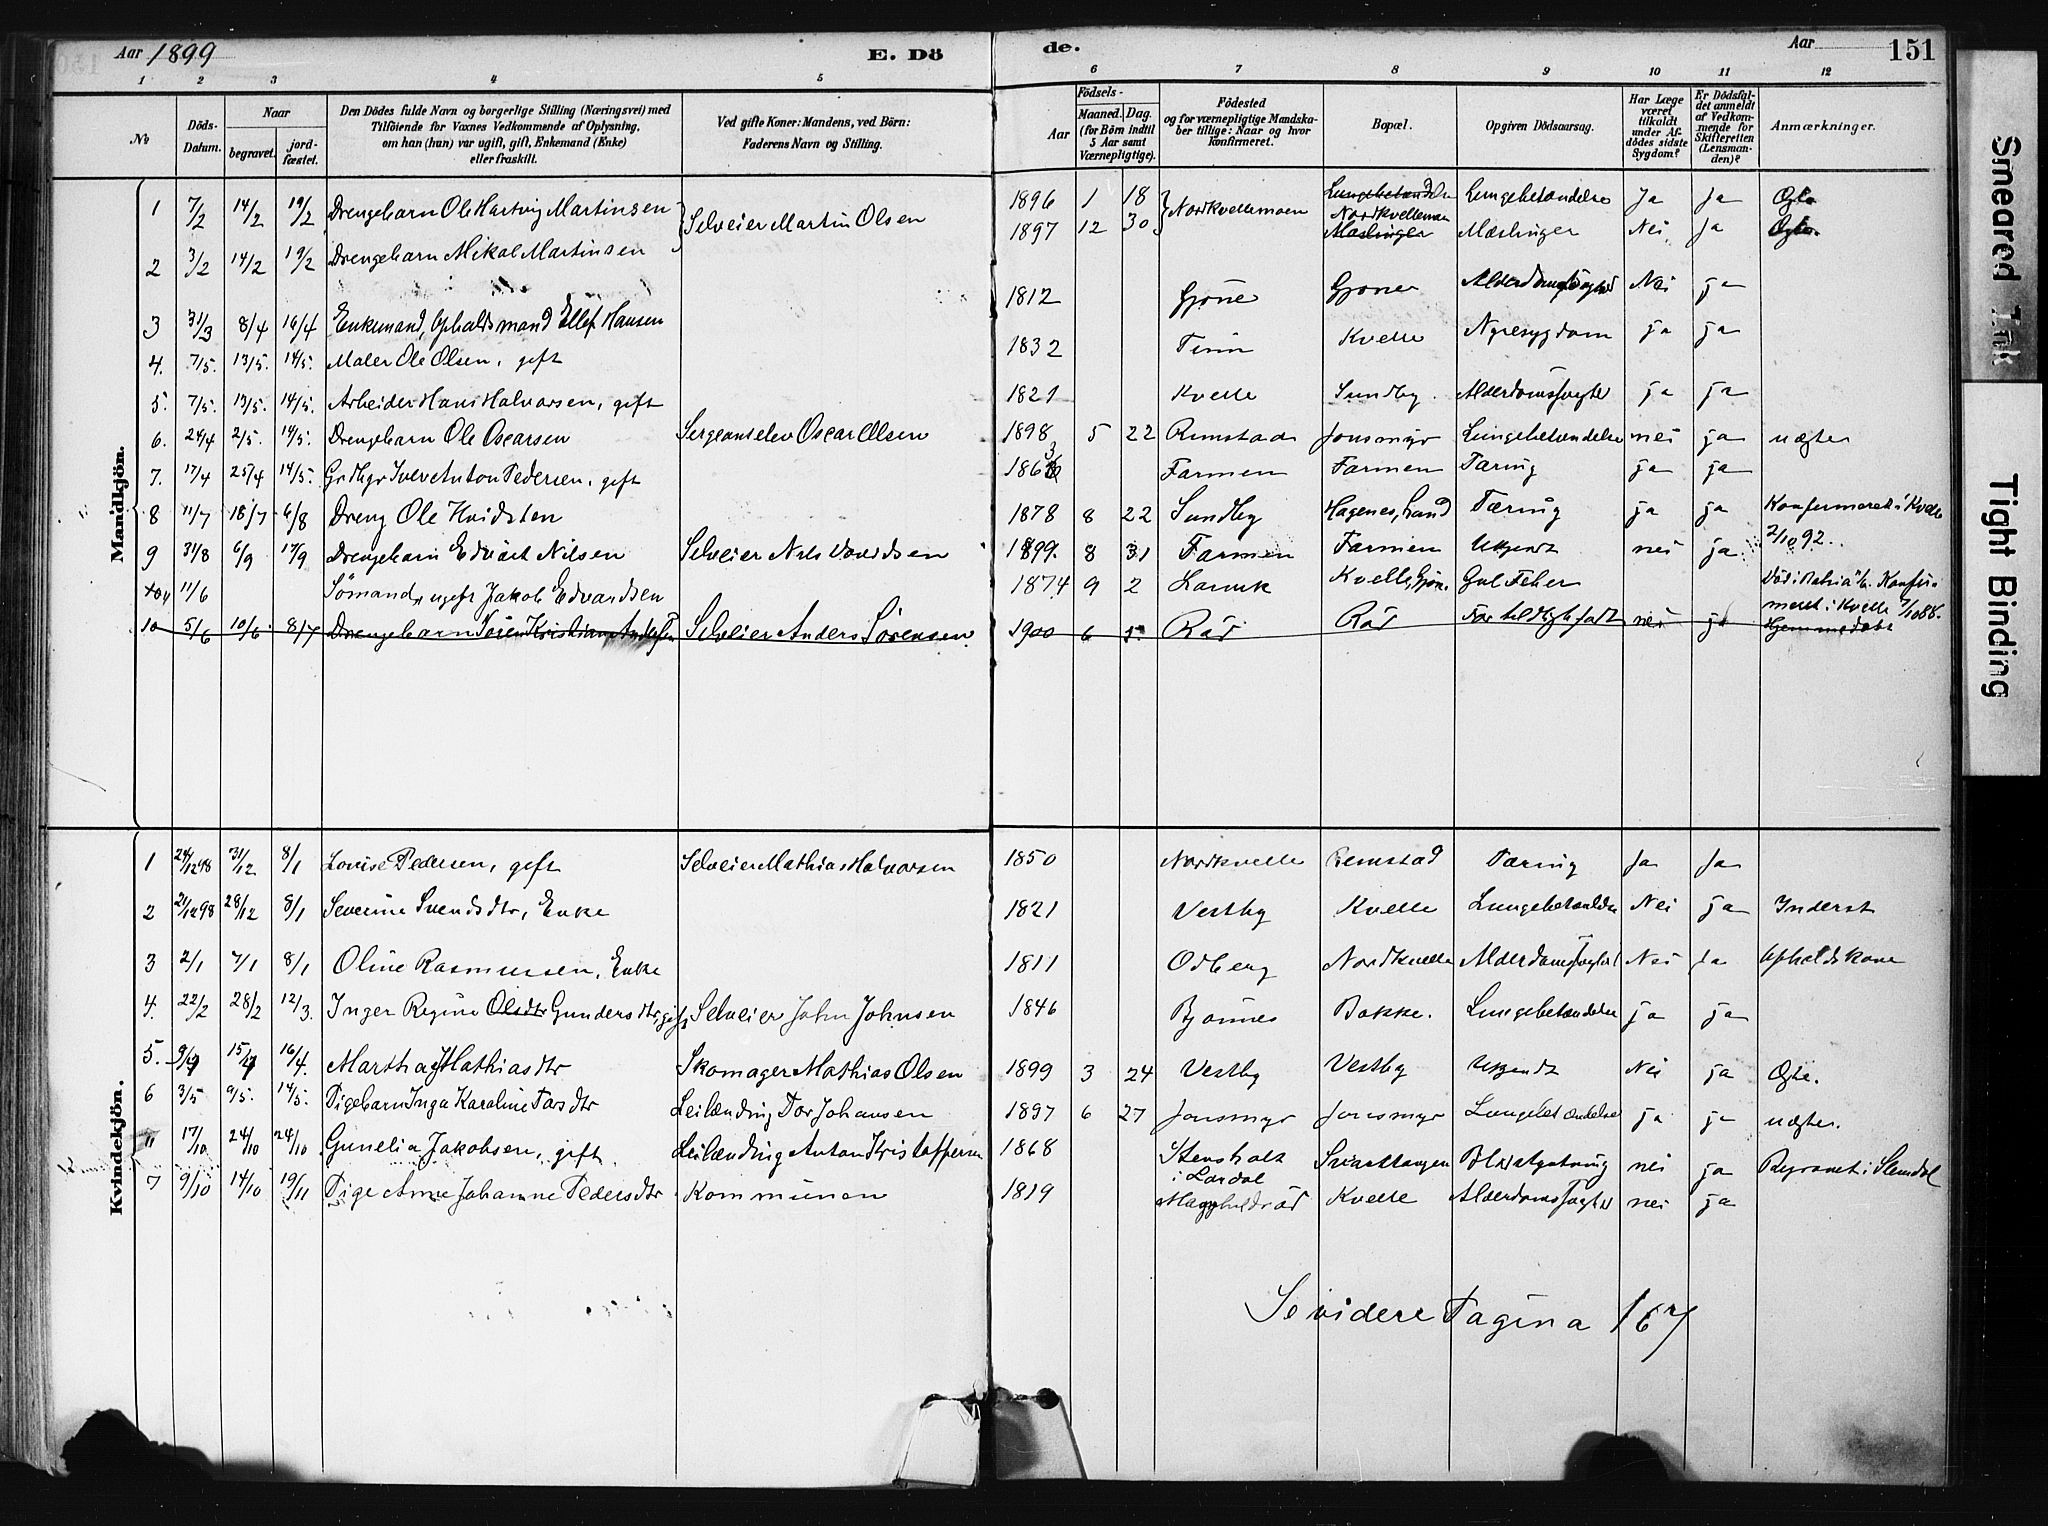 Aar 1899 E. Dö de. Aar 151
1 2 3 4 5 6 7 8 9 10 11 12
No
Döds-Datum.
Naar
begravet.
jord-fæstet.
Den Dödes fulde Navn og borgerlige Stilling (Næringsvei) med
Tilföiende for Voxnes Vedkommende af Oplysning,
om han (hun) var ugift, gift, Enkemand (Enke)
eller fraskilt.
Ved gifte Koner: Mandens, ved Börn:
Faderens Navn og Stilling.
Födsels-
Aar
Maaned. Dag.
(for Börn indtil
5 Aar samt
Værnepligtige).
Födested
og for værnepligtige Mandska-
ber tillige: Naar og hvor
konfirmeret.
Bopæl.
Opgiven Dödsaarsag.
Har Læge
været
tilkaldt
under Af-
dödes sidste
Sygdom?
Er Dödsfal-
det anmeldt
af Vedkom-
mende for
Skifteretten
(Lensman-
den)?
Anmærkninger.
Mandkjön.
1 7/2 14/2 19/2 Drengebarn Ole Hartvig Martinsen Selveier Martin Olsen 1896 1 18 Nordkvellemoen Lungebetændelse Lungebetændelse Ja Ja Ægte
Nordkvellemoen
2 3/2 14/2 19/2 Drengebarn Mikal Martinsen 1897 12 30 Mæslinger Mæslinger Nei Ja Ægte.
3 31/3 8/4 16/4 Enkemand, Opholdsmand Ellef Hansen 1812 Gjone Gjone Alderdomssvaghed Nei ja
4. 7/5. 13/5. 14/5. Maler Ole Olsen, gift 1832 Tinn Kvelle Nyresygdom ja ja
5. 7/5. 13/5. 14/5. Arbeider Hans Halvorsen, gift 1821 Kvelle Sundby. Alderdomssvaghed ja ja
6. 24/4 2/5. 14/5. Drengebarn Ole Oscarsen Sergeantelev Oscar Olsen 1898 5 22 Rimstad Jonsmyr Lungebetændelse nei ja uægte
7. 17/4 25/4 14/5. Iver Anton Pedersen, gift Farmen Farmen Tæring ja ja
8 11/7 18/7 6/8 Dreng Ole Hvidsten 1878 8 22 Sundby Hagenes, Tæring ja ja Konfirmeret i Kvelle
2/10 92.
9 31/8 6/9 17/9 Drengebarn Edvart Nilsen Selveier Nils Davidsen 1899. 8 31 Farmen Farmen Ukjendt nei ja
11/6 Sömand, ugift Jakob Edvardsen 1874 9 2 Larvik Kvelle, Gul Feber Död i Bahia Konfir-
meret i Kvelle 7/10 88.
10 5/6 10/6 8/7 Drengebarn Sören Kristian Andersen Selveier Anders Sörensen. 1900 6 5 Råd Råd For tidlig födt nei ja Hjemmedöbt
Kvindekjön.
1 24/12 98 31/12 8/1 Lovise Pedersen, gift Selveier Mathias Halvorsen 1850 Nordkvelle Remstad Tæring Ja Ja
2 21/12 98 28/12 8/1 Severine Svendsdtr, Enke 1821 Vestby Kvelle Lungebetændelse Nei ja Inderst
3 2/1 7/1 8/1 Oline Rasmussen, Enke 1811 Odberg Nordkvelle Alderdomssvaghed Nei Ja Opholdskone
4. 22/2 28/2 12/3. Inger Regine Olsdtr Gundersdtr, gift Selveier John Johnsen 1846 Bjönnes Bakke. Lungebetændelse ja ja
5. 9/4 15/4 16/4. Martha Mathiasdtr Skomager Mathias Olsen 1899 3 24 Vestby Vestby Ukjendt Nei ja Ægte.
6 3/5 9/5. 14/5. Pigebarn Inga Karoline Torsdtr Leilænding Tor Johansen 1897 6 27 Jonsmyr Jonsmyr Lungebetændelse ja ja uægte.
" 17/10 24/10 24/10 Gunelia Jakobsen, gift Leilænding Anton Kristoffersen 1868 Stensholt
i Lardal Svarttangen Blodstyrtning nei ja Begravet i Slemdal
7 9/10 14/10 19/11 Pige Anne Johanne Pedersdtr Kommunen 1819 Kvelle Alderdomssvaghed nei ja
Se videre Pagina 167
Smeared Ink
Tight Binding